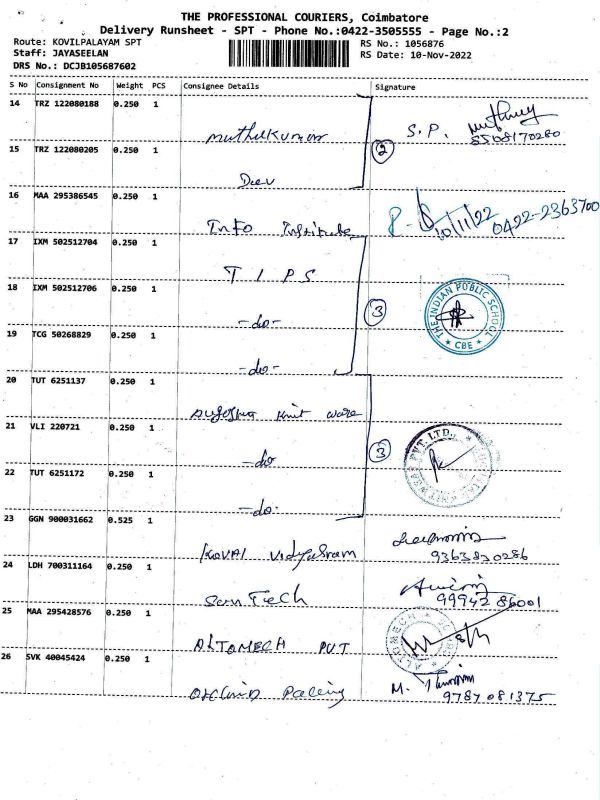 THE PROFESSIONAL COURIERS, Coimbatore
Delivery Runsheet - SPT - Phone No.:0422-3505555 - Page No.:2
Route: KOVILPALAYAM SPT
RS No.: 1056876
Staff: JAYASEELAN
RS Date: 10-Nov-2022
DRS No.: DCJB105687602
S No Consignment No Weight PCS Consignee Details Signature
14 TRZ 122080188 0.250 1
muthukumar S.P.
8508170280
15 TRZ 122080205 0.250 1
2
Dev
16 MAA 295386545 0.250 1
Info Institute 10/11/22 0422-2363700
17 IXM 502512704 0.250 1
T I P S
18 IXM 502512706 0.250 1
-do-
3
THE INDIAN PUBLIC SCHOOL
CBE
19 TCG 50268829 0.250 1
-do-
20 TUT 6251137 0.250 1
knit ware
21 VLI 220721 0.250 1
-do
3
PVT. LTD.
22 TUT 6251172 0.250 1
-do-
23 GGN 900031662 0.525 1
KOVAI Vidyasram
9363830286
24 LDH 700311164 0.250 1
San Tech
99942 86001
25 MAA 295428576 0.250 1
ALTOMECH PVT
ALTOMECH
26 SVK 40045424 0.250 1
M.
9787081375